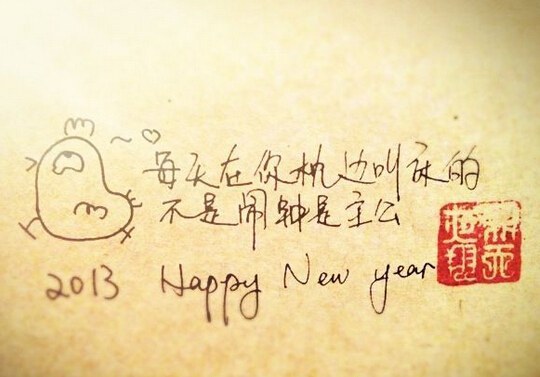 每天在你枕边叫床的
不是闹钟是主公
2013 Happy New year